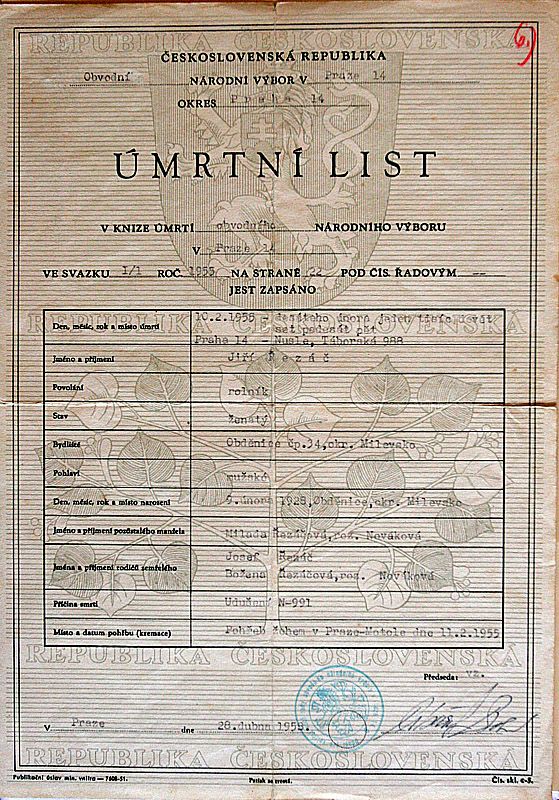 REPUBLIKA ČESKOSLOVENSKÁ
6.)
ČESKOSLOVENSKÁ REPUBLIKA
Obvodní NÁRODNÍ VÝBOR V Praze 14
OKRES Praha 14
ÚMRTNÍ LIST
V KNIZE ÚMRTÍ obvodního NÁRODNÍHO VÝBORU
V Praze 14
VE SVAZKU I/1 ROČ. 1955 NA STRANĚ 22 POD ČÍS. ŘADOVÝM --
JEST ZAPSÁNO
REPUBLIKA ČESKOSLOVENSKÁ
Den, měsíc, rok a místo úmrtí 10.2.1955 - desátého února jeden tisíc devět
set padesát pět
Praha 14 - Nusle, Táborská 988
Jméno a příjmení Jiří Řezáč
Povolání rolník
Stav ženatý
Bydliště Obděnice čp.34, okr. Milevsko
Pohlaví mužské
Den, měsíc, rok a místo narození 9. února 1928, Obděnice, okr. Milevsko
Jméno a příjmení pozůstalého manžela Milada Řezáčová, roz. Nováková
Jména a příjmení rodičů zemřelého Josef Řezáč
Božena Řezáčová, roz. Nováková
Příčina smrti Udušení N-991
Místo a datum pohřbu (kremace) Pohřeb žehem v Praze-Motole dne 11.2.1955
REPUBLIKA ČESKOSLOVENSKÁ
Předseda: Vz.
V Praze dne 28. dubna 1955.
REPUBLIKA ČESKOSLOVENSKÁ
Publikační úslov min. vnitra — 7608-51. Potisk se trestá. Čís. skl. e-8.